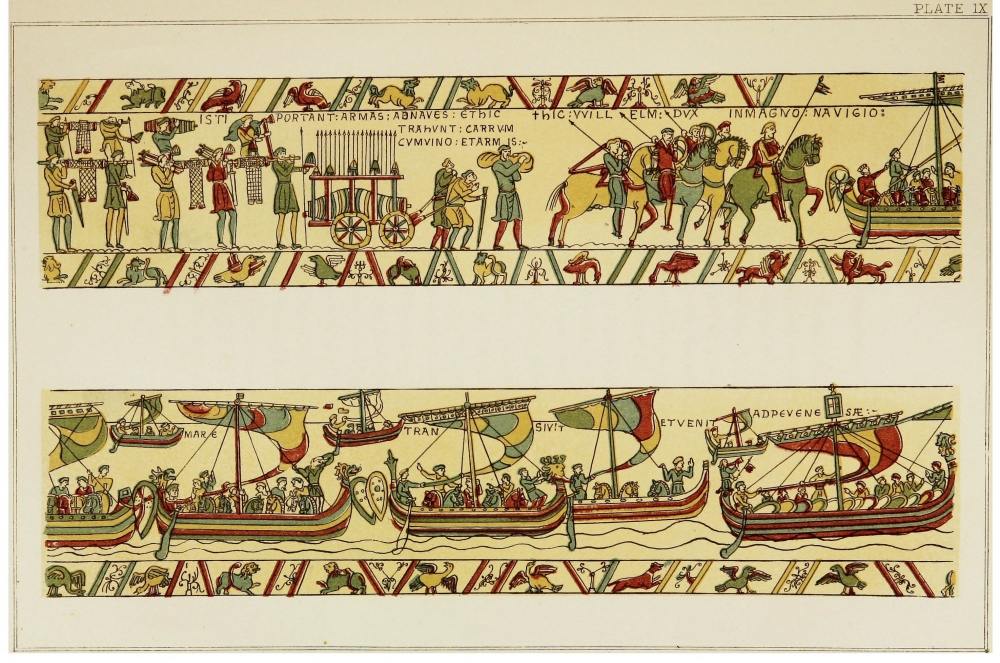 PLATE IX
ISTI PORTANT: ARMAS: ADNAVES: ETHIC
TRAHUNT: CARRUM
CVMVINO: ETARMIS:-
ThIC: VVILLELM: DVX INMAGNO: NAVIGIO:
MARE TRANSIVIT ETVENIT ADPEVENESÆ:-